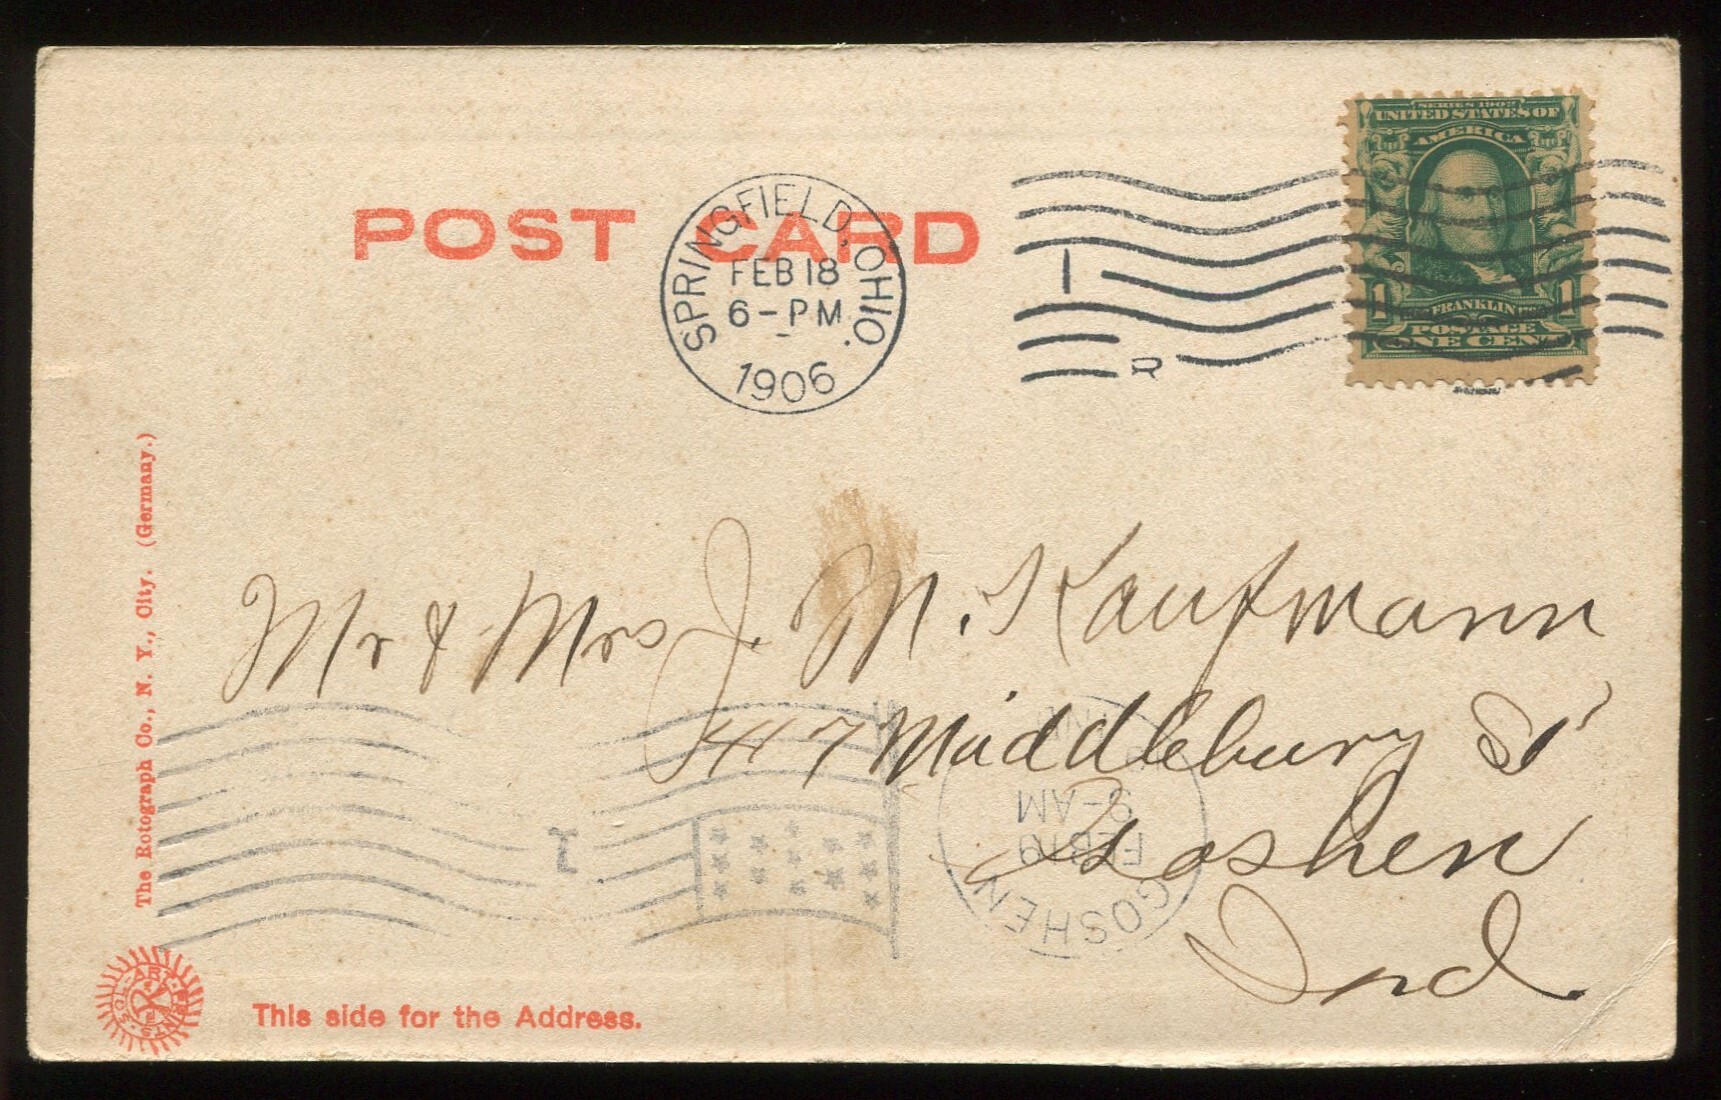 SERIES 1902
UNITED STATES OF
AMERICA
1 FRANKLIN 1
POSTAGE
ONE CENT
POST CARD
SPRINGFIELD, OHIO.
FEB 18
6-PM
1906
1
R
Mr & Mrs J. M. Kaufmann
417 Middlebury St
Goshen
Ind
GOSHEN
IND
FEB 19
AM
1
The Rotograph Co., N. Y., City. (Germany.)
SOL-ART PRINTS
This side for the Address.